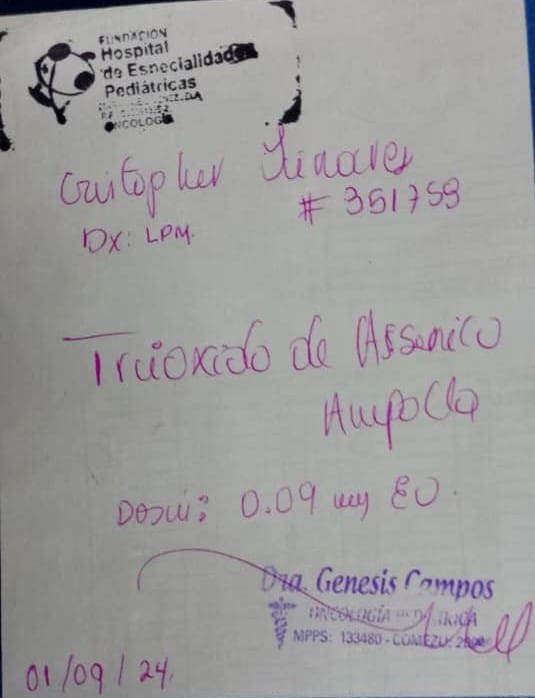 FUNDACIÓN
Hospital
de Especialidades
Pediátricas
ONCOLOGÍA
Cristopher Linares
# 351759
DX: LPM.
Trioxido de Arsenico
Ampolla
Dosis: 0.09 mg EV.
Dra. Genesis Campos
ONCOLOGÍA PEDIATRICA
MPPS: 133480 - COMEZU:
01/09/24.